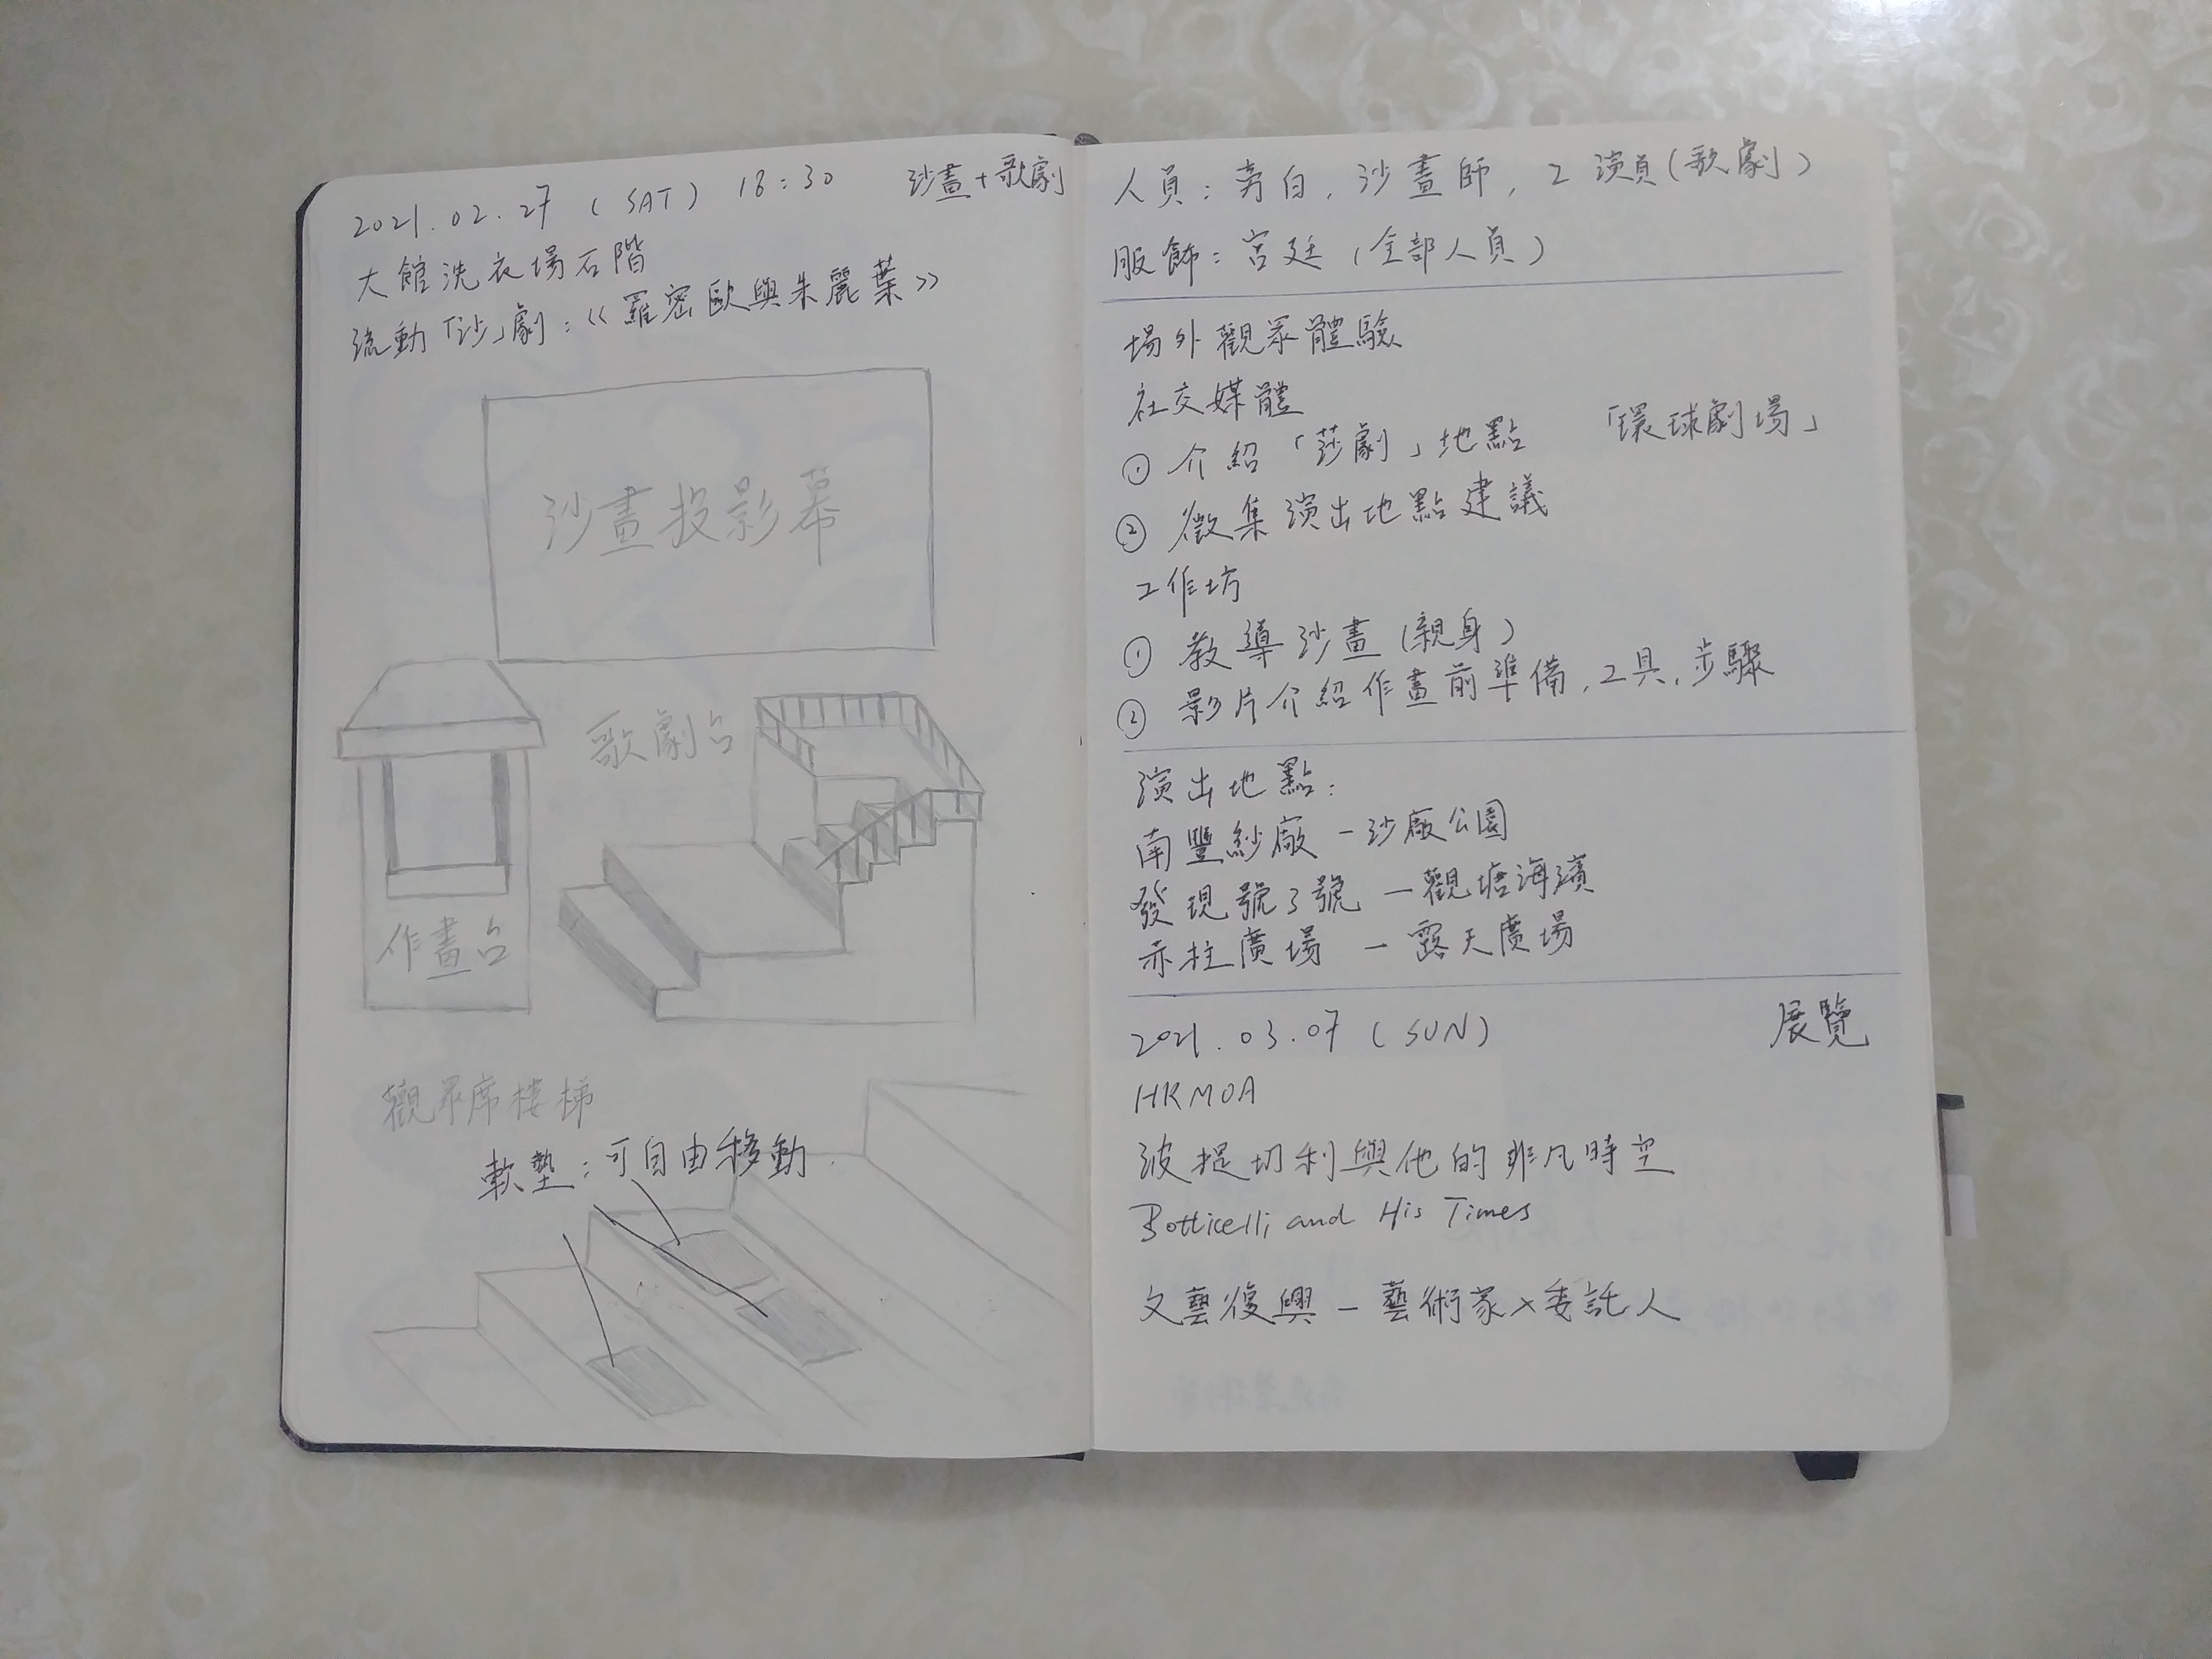 2021.02.27 (SAT) 18:30 沙畫+歌劇
大館洗衣場石階
流動「沙」劇:《羅密歐與朱麗葉》
沙畫投影幕
歌劇台
作畫台
觀眾席樓梯
軟墊:可自由移動
人員:旁白,沙畫師,2演員(歌劇)
服飾:宮廷(全部人員)
場外觀眾體驗
社交媒體
① 介紹「莎劇」地點 「環球劇場」
② 徵集演出地點建議
工作坊
① 教導沙畫(親身)
② 影片介紹作畫前準備,工具,步驟
演出地點:
南豐紗廠 - 沙廠公園
發現號3號 - 觀塘海濱
赤柱廣場 - 露天廣場
2021.03.07 (SUN) 展覽
HKMOA
波提切利與他的非凡時空
Botticelli and His Times
文藝復興 - 藝術家×委託人